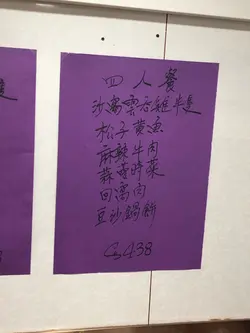 四人餐
沙窩雲吞雞半隻
松子黃魚
麻辣牛肉
蒜蓉時菜
回窩肉
豆沙鍋餅
$438